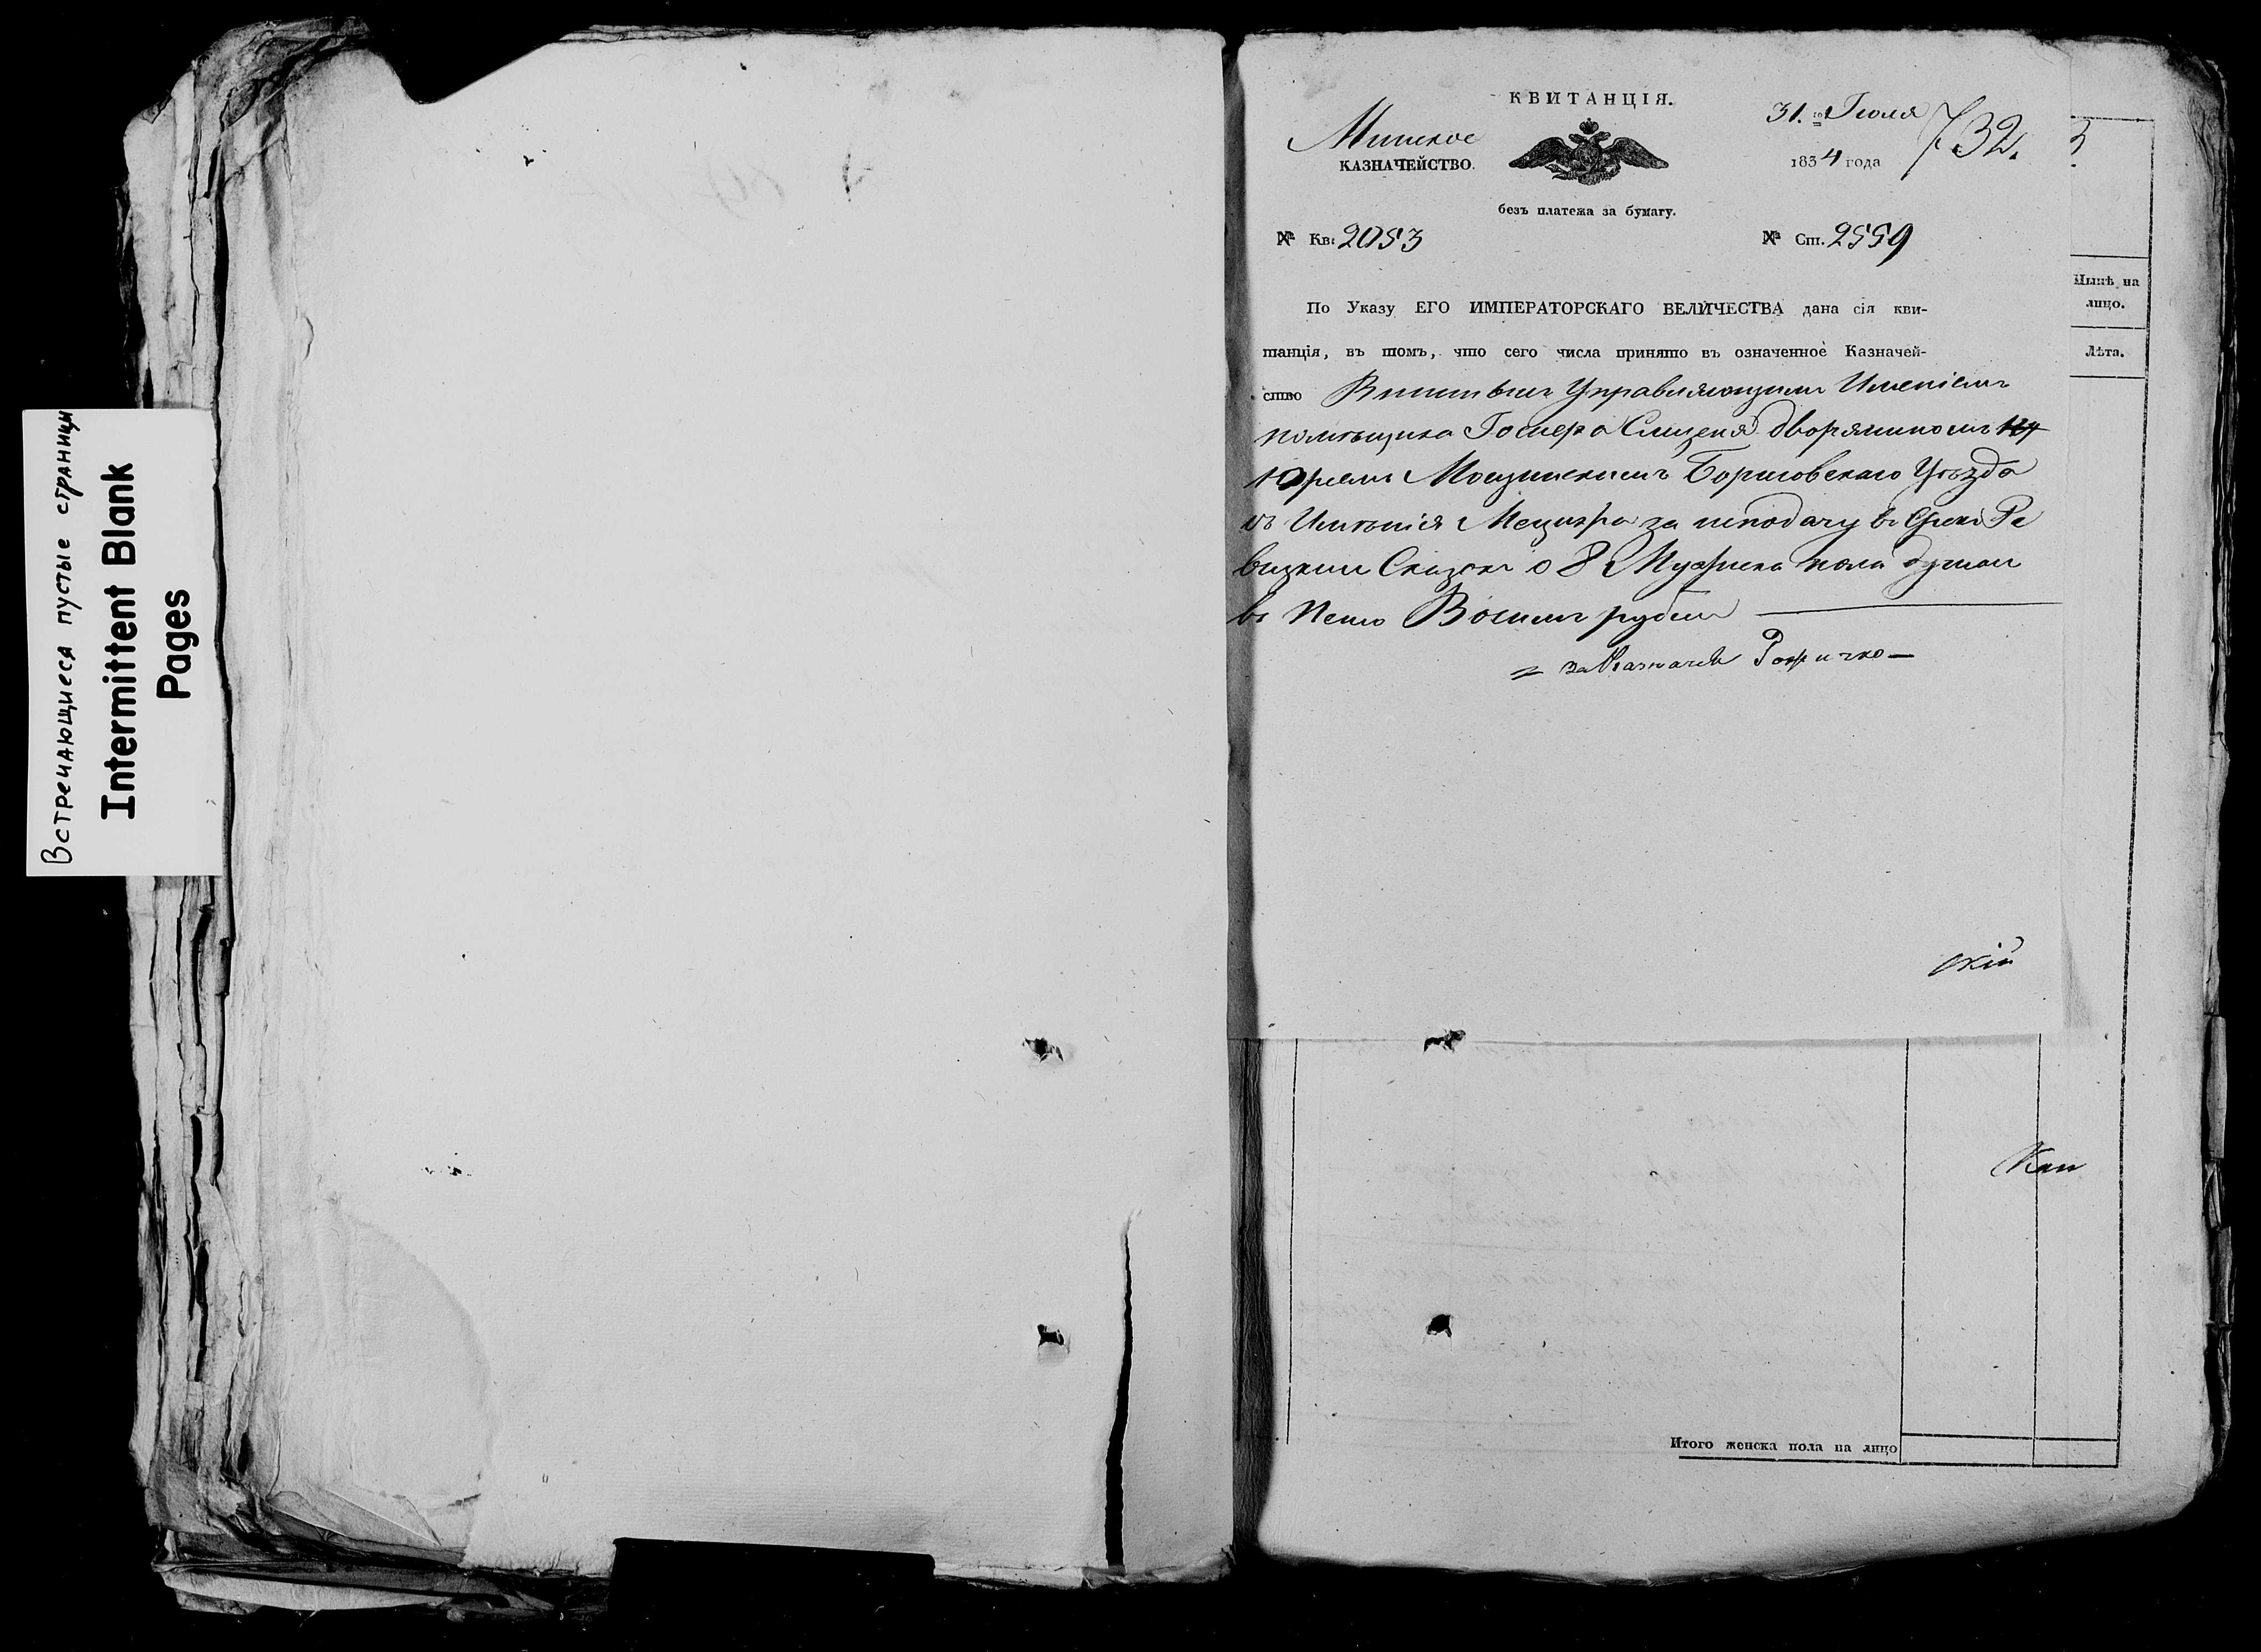 Встречающиеся пустые страницы
Intermittent Blank
Pages
КВИТАНЦІЯ.
Минское
КАЗНАЧЕЙСТВО.
31.го Іюля
1834 года
732.
безъ платежа за бумагу.
№ Кв: 2053
№ Ст. 2559
По Указу ЕГО ИМПЕРАТОРСКАГО ВЕЛИЧЕСТВА дана сія кви-
танція, въ томъ, что сего числа принято въ означенное Казначей-
ство Управляющимъ Имѣніемъ
помѣщика Слизеня дворяниномъ
Юріемъ Борисовскаго Уѣзда
съ Имѣнія за неподачу въ Срокъ Ре
визкии Сказокъ о 8 Мужеска пола душахъ
въ Пеню Восемъ рублей
за Казначея
скій
Нынѣ на
лицо.
Лѣта.
Кан
Итого женска пола на лицо